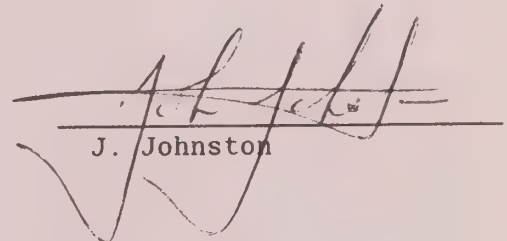 J. Johnston